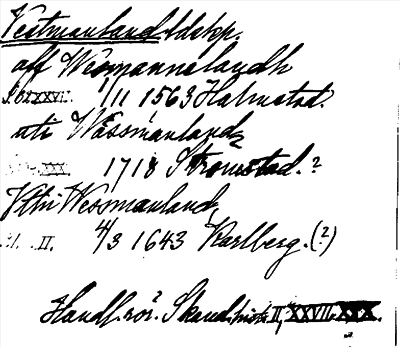 Vestmanland
aff Wesmannelandh
1/11 1563 Halmstad.
uti Wässmanland
1718 Strömstad.?
Uthi Wessmanland
II. 4/3 1643 Karlberg.(?)
Handl. rör. Skand. hist. II, XXVII, XXX.